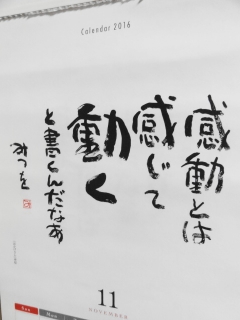 Calendar 2016
感動とは
感じて
動く
と書くんだなあ
みつを
11
NOVEMBER
Sun
Mon